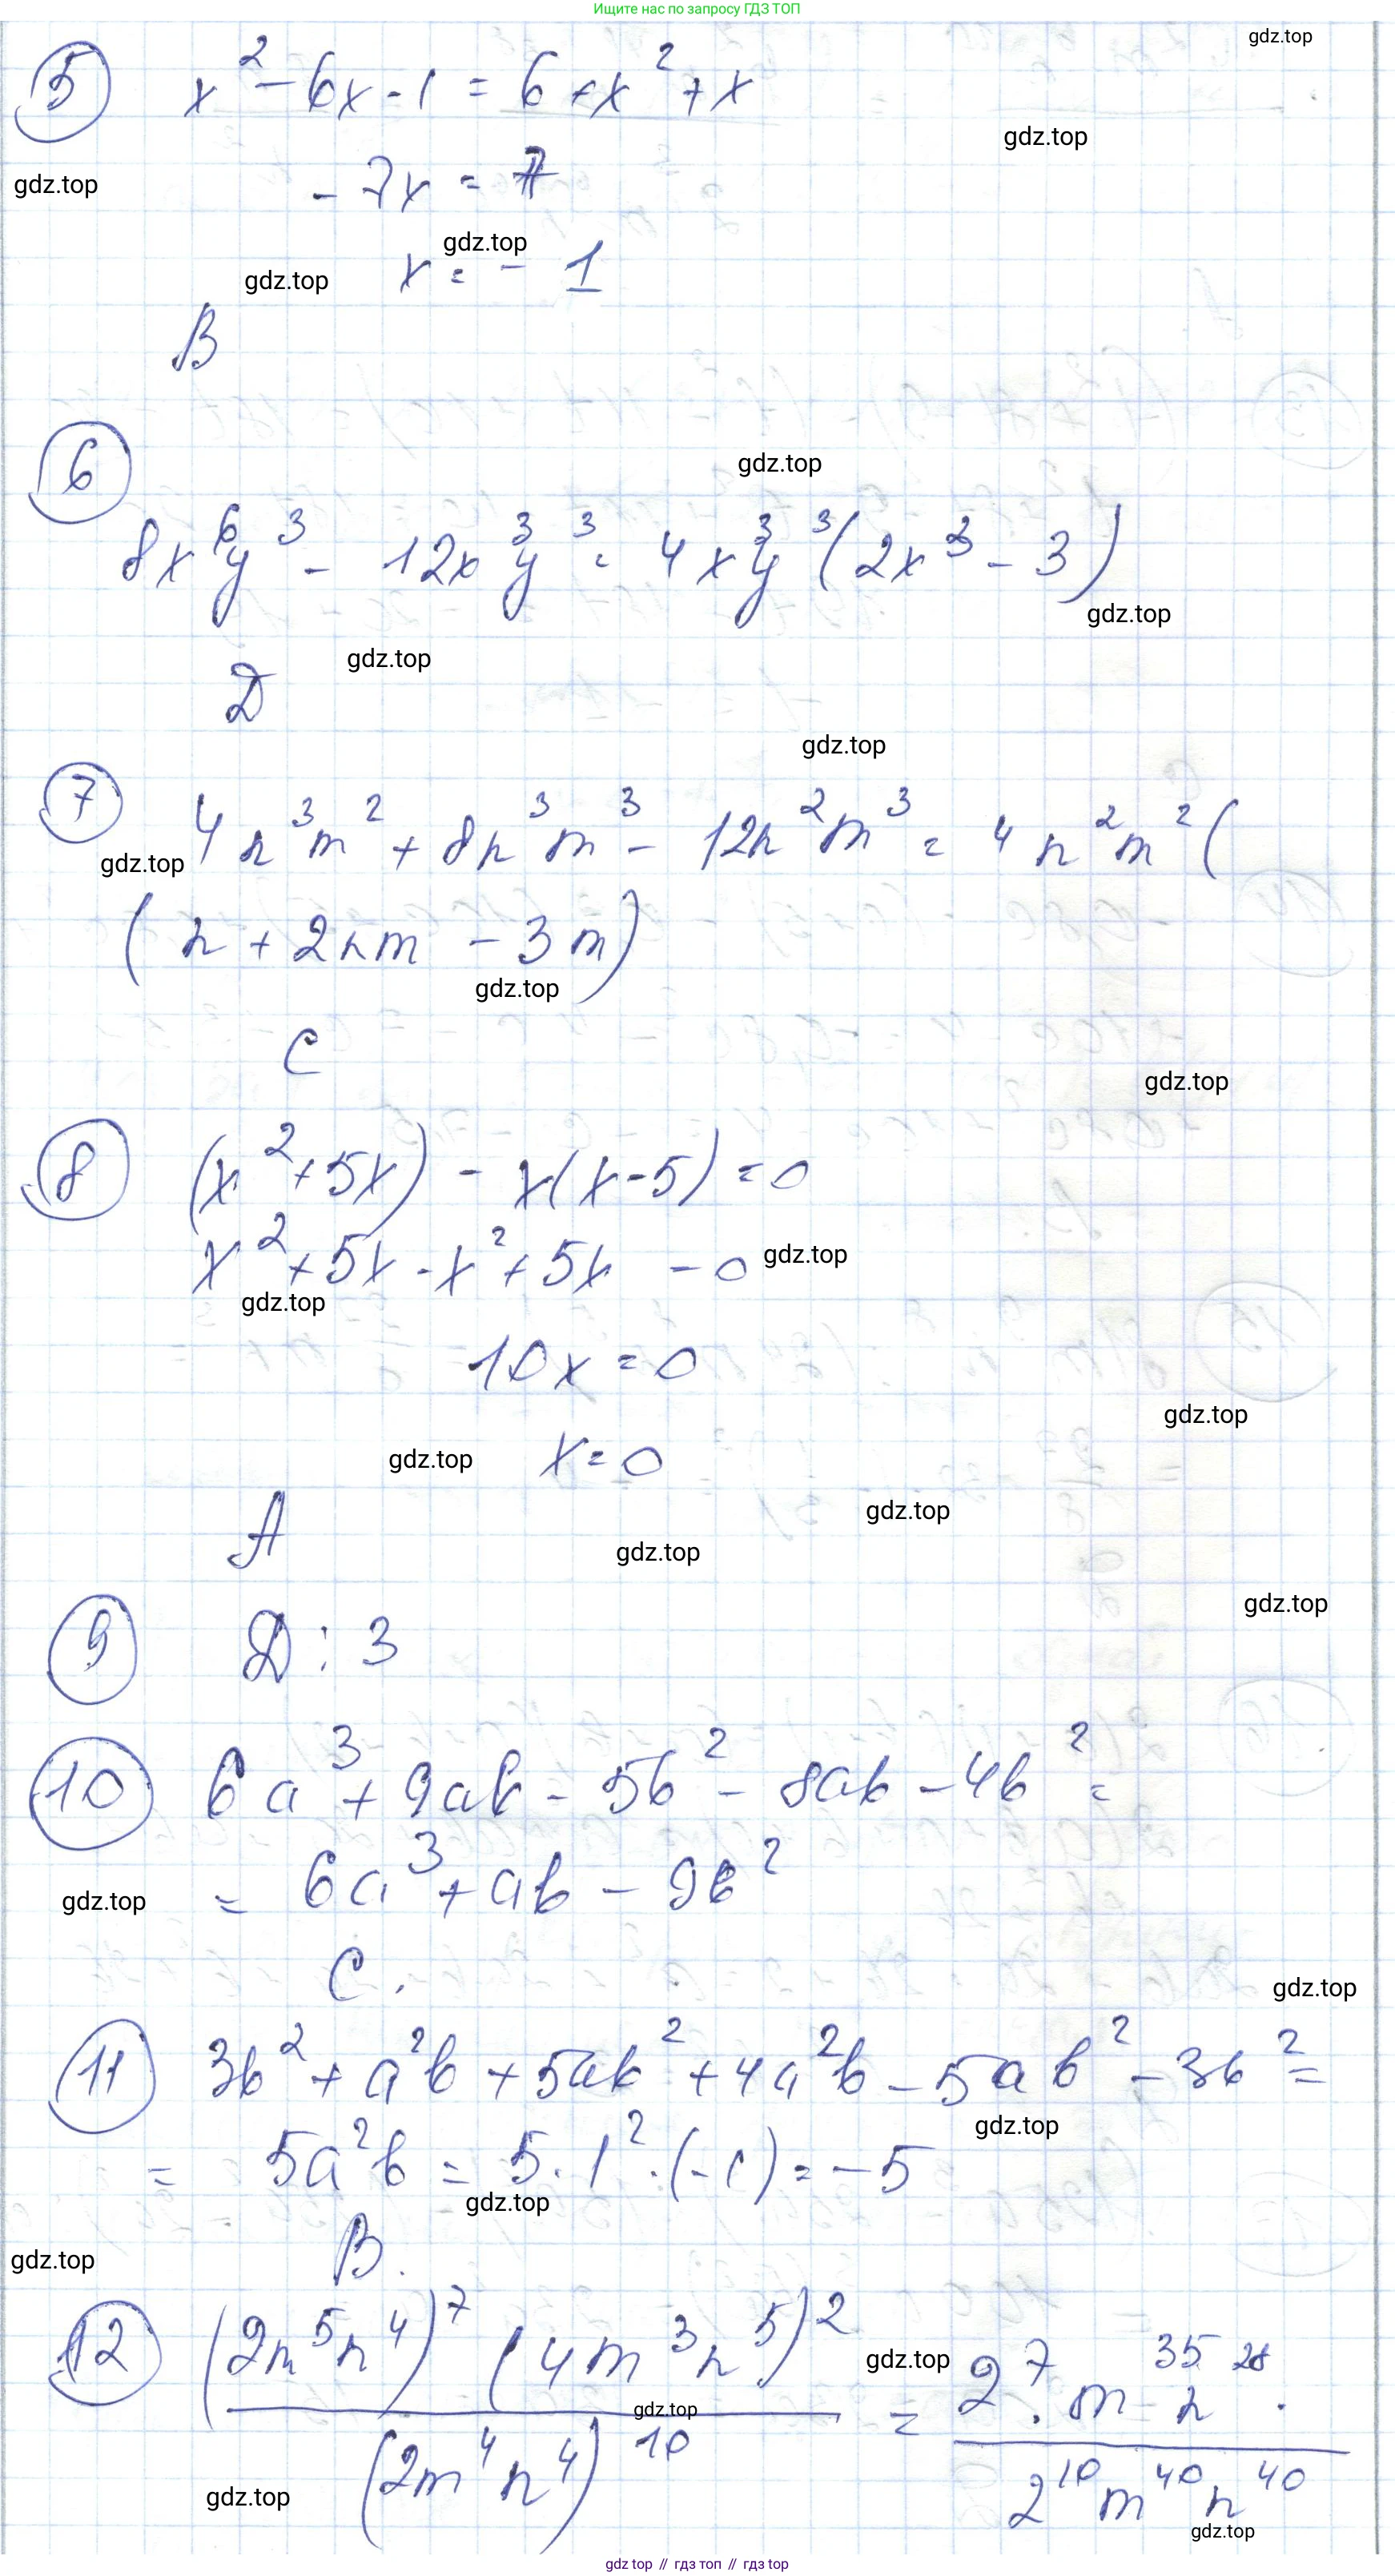 Ищите нас по запросу ГДЗ ТОП
gdz.top
5 x² - 6x - 1 = 6 + x² + x
gdz.top
gdz.top
- 7x = 7
gdz.top
x = - 1
gdz.top
B
6
gdz.top
8x⁶y³ - 12x³y³ = 4x³y³(2x³ - 3)
gdz.top
gdz.top
D
gdz.top
7 4n³m² + 8n³m³ - 12n²m³ = 4n²m²(
gdz.top
(n + 2nm - 3m)
gdz.top
C
gdz.top
8 (x² + 5x) - x(x - 5) = 0
x² + 5x - x² + 5x = 0
gdz.top
gdz.top
10x = 0
gdz.top
gdz.top
x = 0
gdz.top
A
gdz.top
gdz.top
9 D : 3
10 6a³ + 9ab - 5b² - 8ab - 4b² =
= 6a³ + ab - 9b²
gdz.top
C.
gdz.top
11 3b² + a²b + 5ab² + 4a²b - 5ab² - 3b² =
gdz.top
= 5a²b = 5 · 1² · (-1) = -5
gdz.top
B.
gdz.top
12 (2m⁵n⁴)⁷ (4m³n⁵)² / (2m⁴n⁴)¹⁰ = 2⁷ · m³⁵ n²⁸ · / 2¹⁰ m⁴⁰ n⁴⁰
gdz.top
gdz.top
gdz.top
gdz.top
gdz top // гдз топ // гдз top